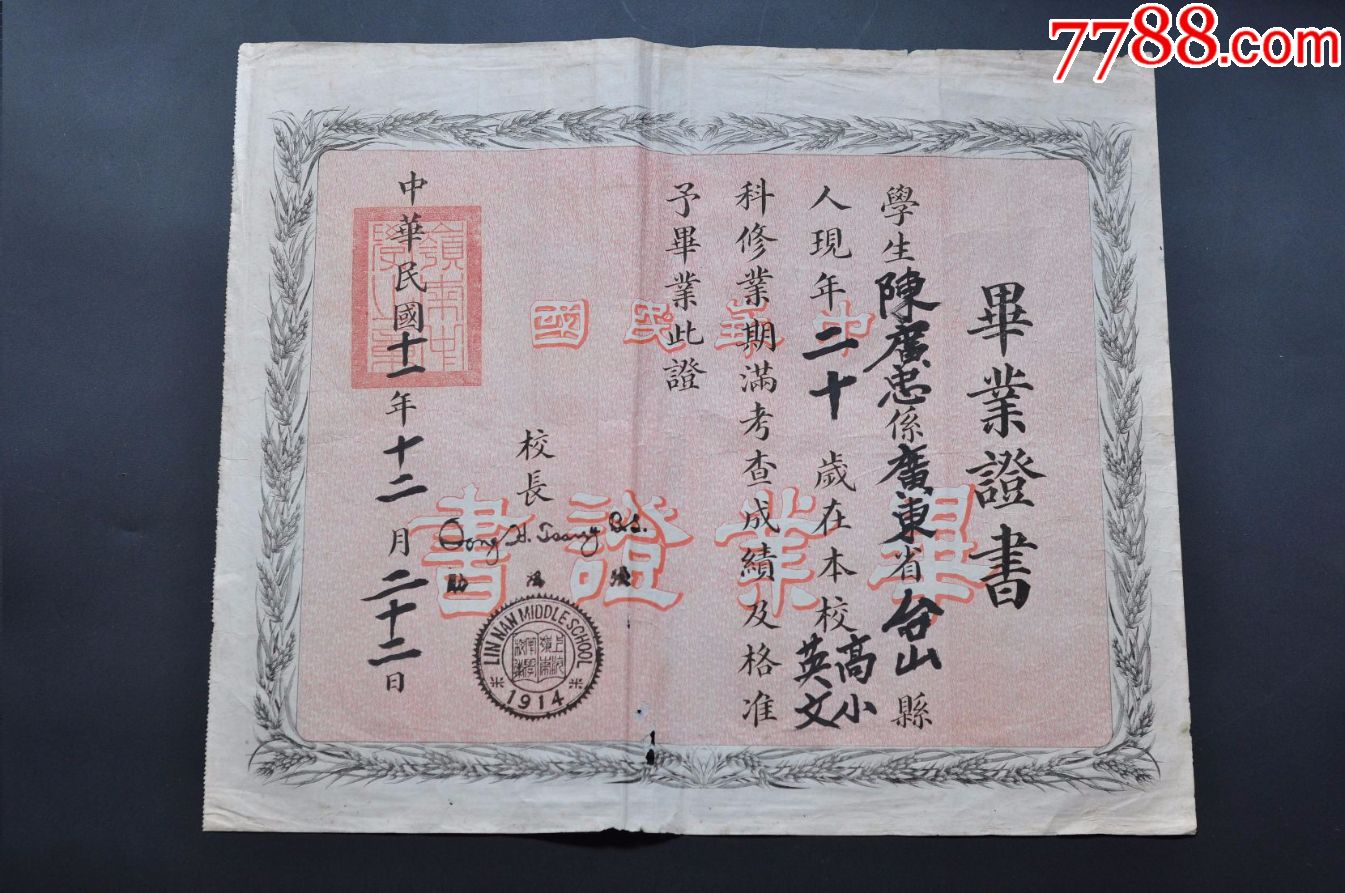 7788.com
畢業證書
學生陳廣忠係廣東省台山縣
人現年二十歲在本校高小英文
科修業期滿考查成績及格准
予畢業此證
校長
中華民國十一年十二月二十二日
中華民國
畢業證書
嶺南中學之章
LINNAN MIDDLE SCHOOL
1914